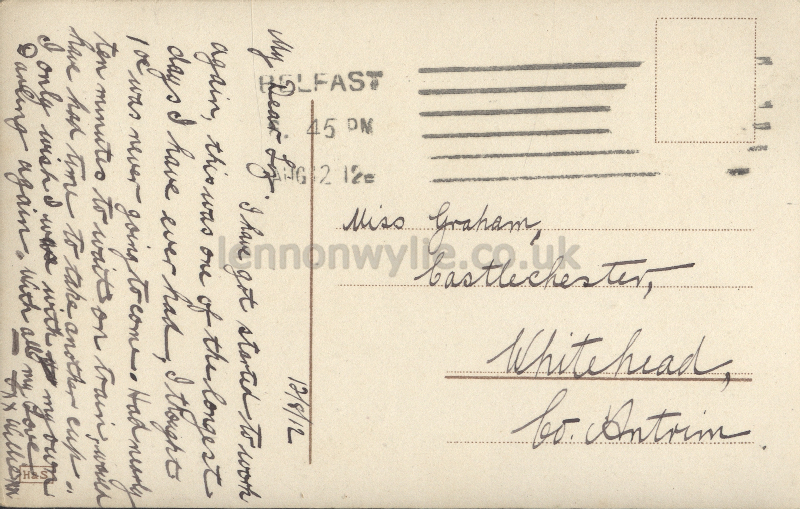 BELFAST
45 PM
AUG 12 12
Miss Graham,
Castlechester,
Whitehead,
Co. Antrim.
12/8/12
My Dear I have got started to work
again, this was one of the longest
days I have ever had, I thought
was never going to come. Had nearly
ten minutes to wait on train, would
have had time to take another cup.
I only wish I was with my own
Darling again. With all my Love
William
H&S
lennonwylie.co.uk